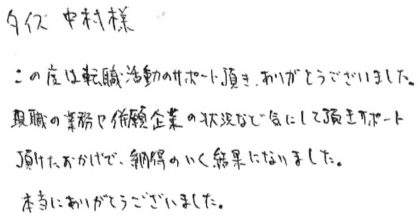 タイズ 中村様
この度は転職活動のサポート頂き、ありがとうございました。
現職の業務や併願企業の状況など気にして頂きサポート
頂けたおかげで、納得のいく結果になりました。
本当にありがとうございました。